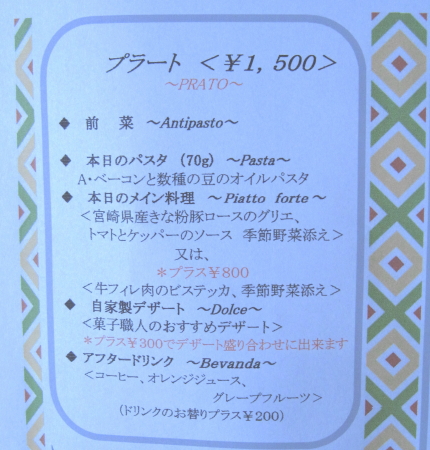 プラート <￥1,500>
～PRATO～
◆ 前 菜 ～Antipasto～
◆ 本日のパスタ (70g) ～Pasta～
A・ベーコンと数種の豆のオイルパスタ
◆ 本日のメイン料理 ～Piatto forte～
<宮崎県産きな粉豚ロースのグリエ、
トマトとケッパーのソース 季節野菜添え>
又は、
＊プラス￥800
<牛フィレ肉のビステッカ、季節野菜添え>
◆ 自家製デザート ～Dolce～
<菓子職人のおすすめデザート>
＊プラス￥300でデザート盛り合わせに出来ます
◆ アフタードリンク ～Bevanda～
<コーヒー、オレンジジュース、
グレープフルーツ>
(ドリンクのお替りプラス￥200)